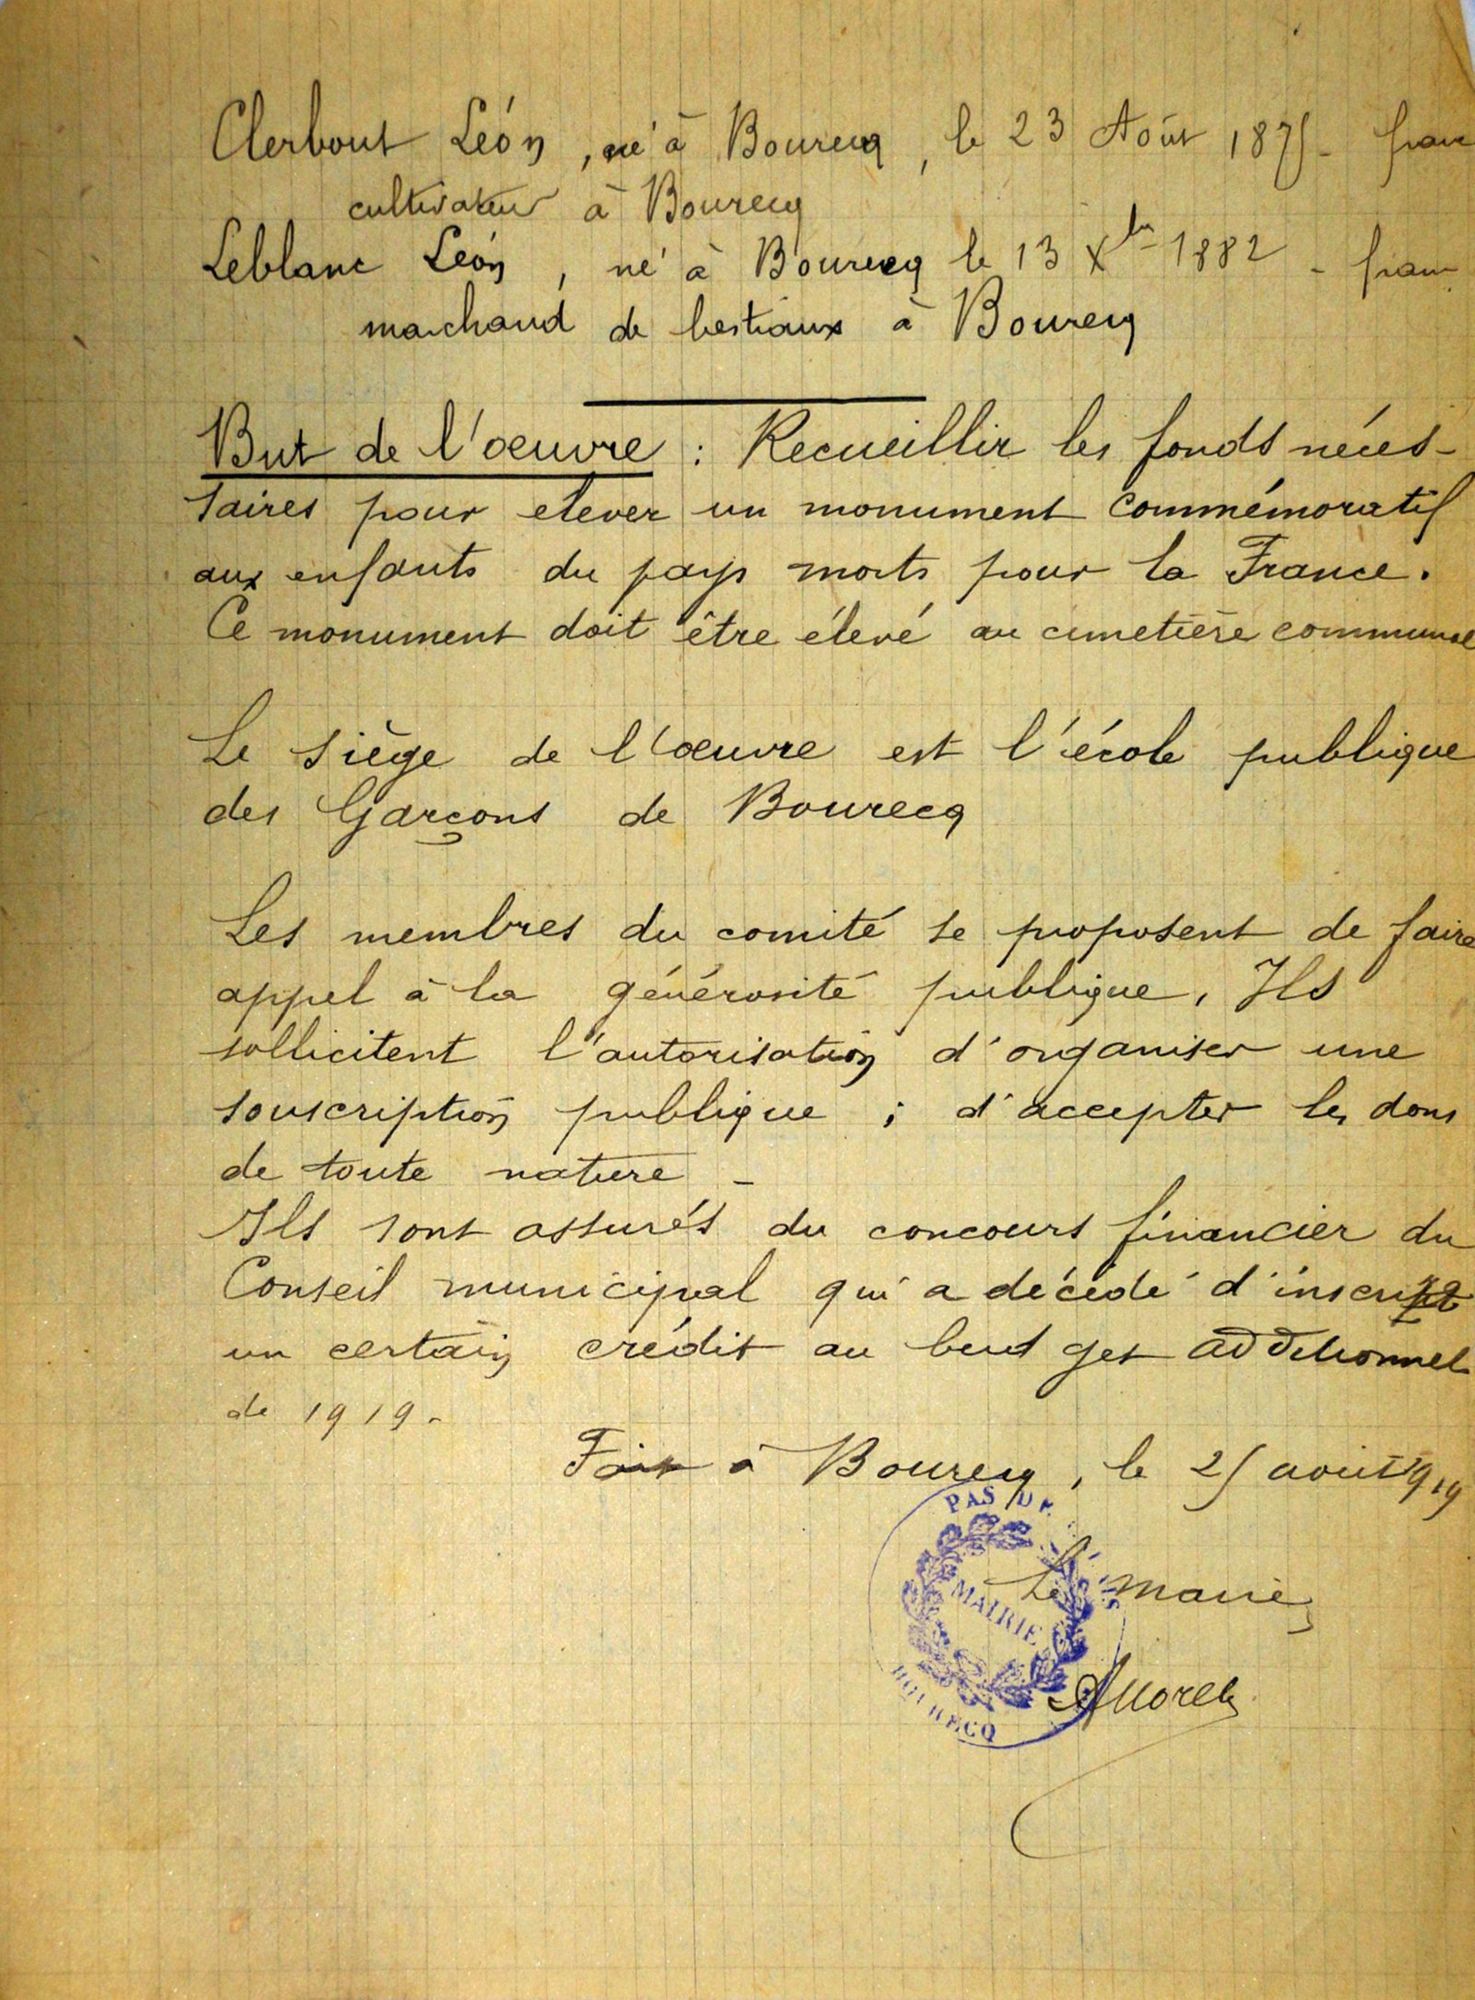 Clerbout Léon, né à Bourecq, le 23 Août 1875 - franc
cultivateur à Bourecq
Leblanc Léon, né à Bourecq le 13 Xbre 1882 - franc
marchand de bestiaux à Bourecq
But de l'œuvre : Recueillir les fonds néces-
saires pour elever un monument commémoratif
aux enfants du pays morts pour la France.
Ce monument doit être élevé au cimetière communal
Le siège de l'œuvre est l'école publique
des Garçons de Bourecq
Les membres du comité se proposent de faire
appel à la générosité publique, Ils
sollicitent l'autorisation d'organiser une
souscription publique ; d'accepter les dons
de toute nature -
Ils sont assurés du concours financier du
Conseil municipal qui a décédé d'inscrire
un certain crédit au bud get additionnel
de 1919 -
Fait à Bourecq, le 25 août 1919
Le maire
AMorel
PAS DE CALAIS
MAIRIE
BOURECQ